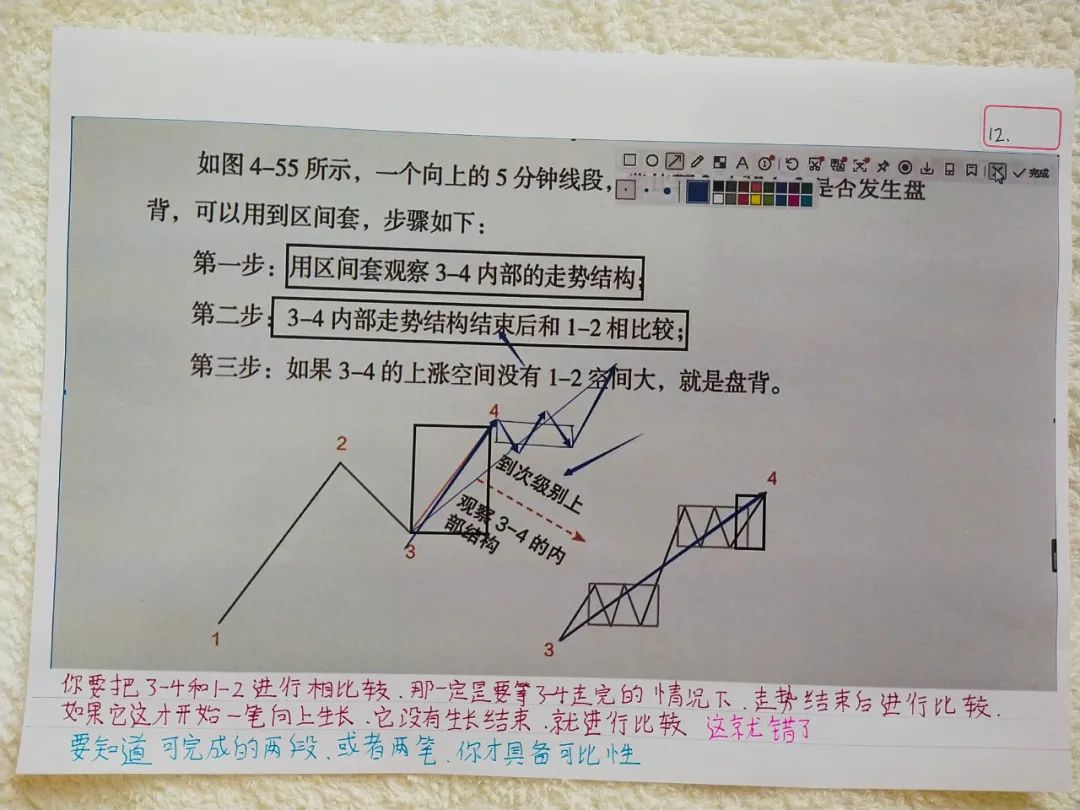 12.
完成
如图 4-55 所示，一个向上的 5 分钟线段，
是否发生盘
背，可以用到区间套，步骤如下：
第一步：用区间套观察 3-4 内部的走势结构；
第二步：3-4 内部走势结构结束后和 1-2 相比较；
第三步：如果 3-4 的上涨空间没有 1-2 空间大，就是盘背。
4
2
到次级别上
观察 3-4 的内
部结构
3
1
4
3
你要把3-4和1-2进行相比较、那一定是要等3-4走完的情况下、走势结束后进行比较.
如果它这才开始一笔向上生长、它没有生长结束、就进行比较 这就错了
要知道 可完成的两段、或者两笔、你才具备可比性